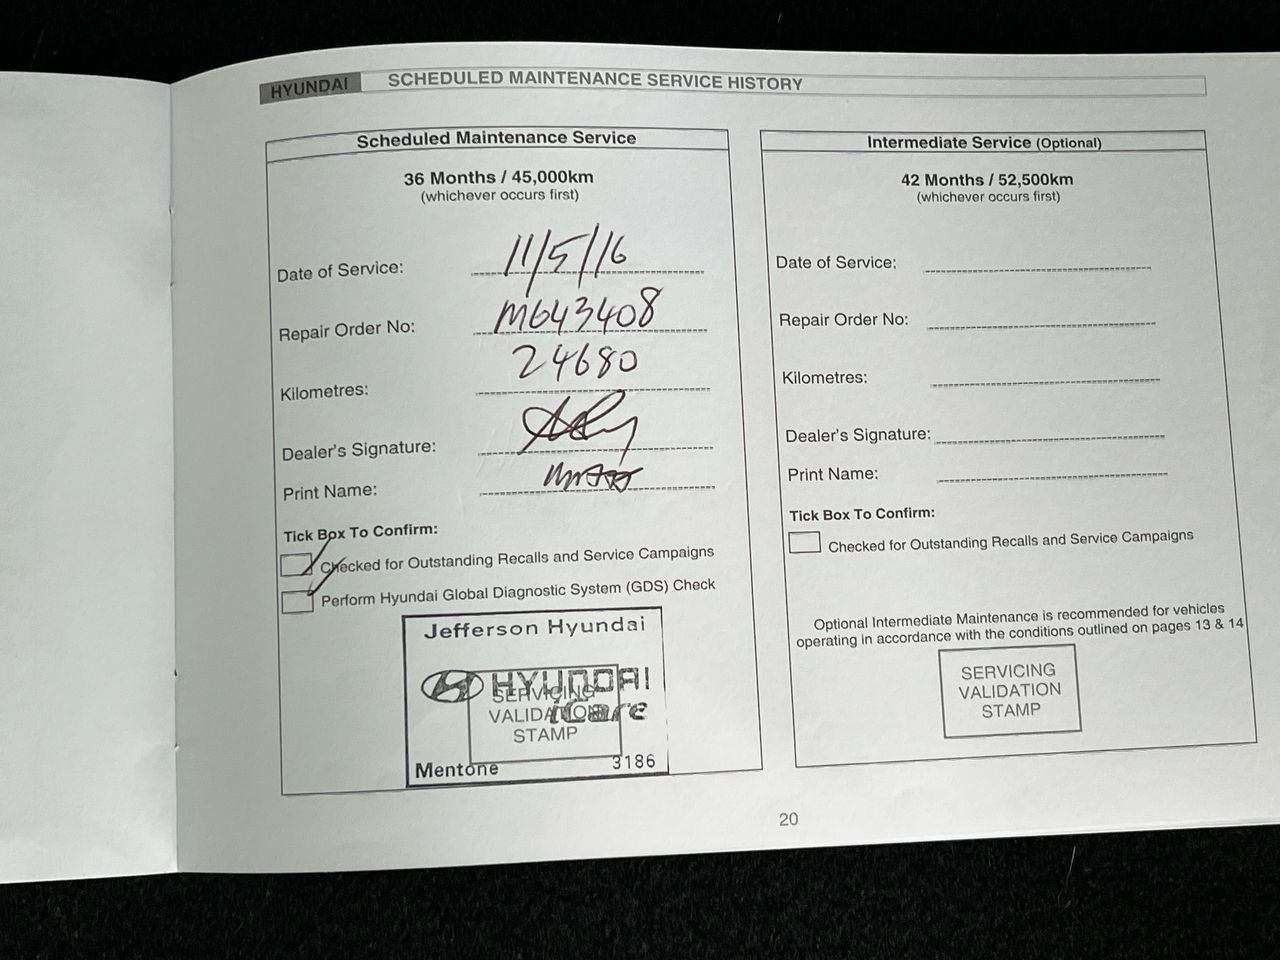 HYUNDAI SCHEDULED MAINTENANCE SERVICE HISTORY
Scheduled Maintenance Service
36 Months / 45,000km
(whichever occurs first)
Date of Service: 11/5/16
Repair Order No: M643408
Kilometres: 24680
Dealer's Signature:
Print Name:
Tick Box To Confirm:
Checked for Outstanding Recalls and Service Campaigns
Perform Hyundai Global Diagnostic System (GDS) Check
Jefferson Hyundai
HYUNDAI
iCare
SERVICING
VALIDATION
STAMP
Mentone 3186
Intermediate Service (Optional)
42 Months / 52,500km
(whichever occurs first)
Date of Service:
Repair Order No:
Kilometres:
Dealer's Signature:
Print Name:
Tick Box To Confirm:
Checked for Outstanding Recalls and Service Campaigns
Optional Intermediate Maintenance is recommended for vehicles
operating in accordance with the conditions outlined on pages 13 & 14
SERVICING
VALIDATION
STAMP
20